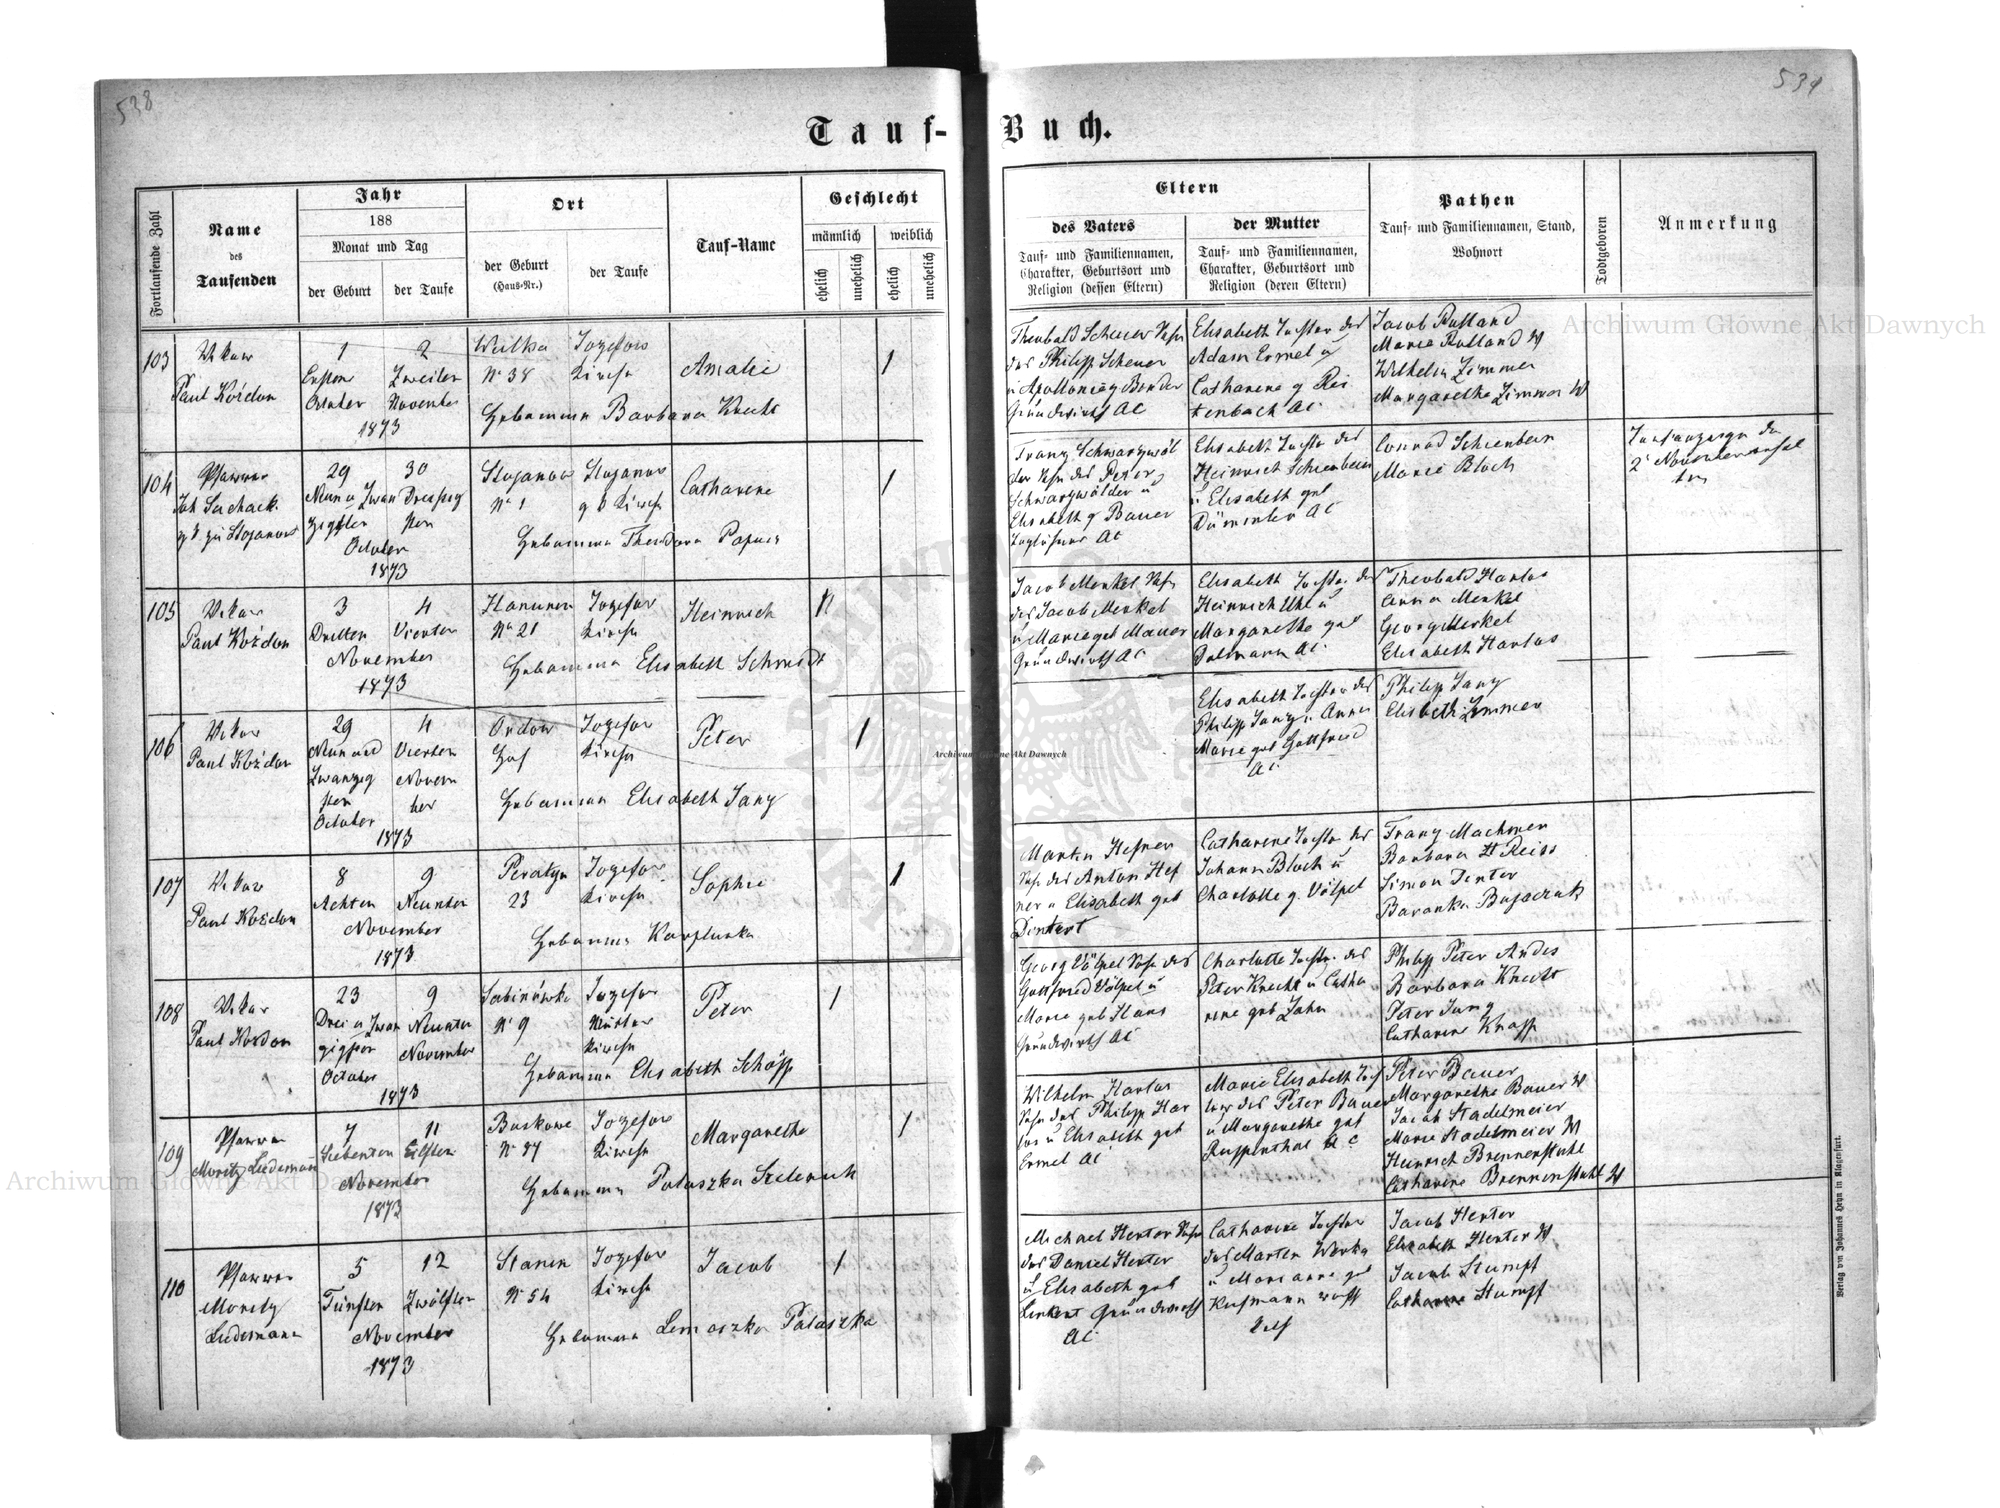 538
539
Tauf-Buch.
Fortlaufende Zahl
Name
des
Taufenden
Jahr
188
Monat und Tag
der Geburt
der Taufe
Ort
der Geburt
(Haus-Nr.)
der Taufe
Tauf-Name
Geschlecht
männlich
weiblich
ehelich
unehelich
ehelich
unehelich
Eltern
des Vaters
Tauf- und Familiennamen,
Charakter, Geburtsort und
Religion (dessen Eltern)
der Mutter
Tauf- und Familiennamen,
Charakter, Geburtsort und
Religion (deren Eltern)
Pathen
Tauf- und Familiennamen, Stand,
Wohnort
Todtgeboren
Anmerkung
103
Vikar
Paul Koždon
1
Ersten
October
2
Zweiten
November
1873
Wulka
No 38
Jozefow
Kirche
Hebamme Barbara Knecht
Amalie
1
Theobald Scheuer Sohn
des Philipp Scheuer
u Apollonia g Bonder
Grundwirth AC
Elisabeth Tochter des
Adam Ermel u
Catharene g Rei
tenbach AC
Jacob Rulland
Marie Rulland W
Wilhelm Zimmer
Margarethe Zimmer W
104
Pfarrer
Joh Sachack
zu Stojanow
29
Neun u Zwan
zigsten
30
Dreissig
sten
October
1873
Stojanow
No 1
Stojanow
Kirche
Hebamme Theodora
Catharene
1
Franz Schwarzwäl
der Sohn des Peter
Schwarzwälder u
Elisabeth g Bauer
AC
Elisabeth Tochter des
Heinrich Schienbein
u Elisabeth geb
AC
Conrad Schienbein
Marie Bloch
2 November
105
Vikar
Paul Koždon
3
Dritten
4
Vierten
November
1873
Hanunin
No 21
Jozefow
Kirche
Hebamme Elisabeth Schmidt
Heinrich
Jacob Menkel Sohn
des Jacob Menkel
u Marie geb Mauer
Grundwirth AC
Elisabeth Tochter des
Heinrich Uhl u
Margarethe geb
Dalmann AC
Theobald Harlos
Anna Menkel
Georg Merkel
Elisabeth Harlos
106
Vikar
Paul Koždon
29
Neun und
Zwanzig
sten
October
4
Vierten
Novem
ber
1873
Ordow
Hof
Jozefow
Kirche
Hebamme Elisabeth Jany
Peter
1
Elisabeth Tochter des
Philipp Jany u Anna
Marie geb Gottfried
AC
Philipp Jany
Elisbeth Zimmer
107
Vikar
Paul Koždon
8
Achten
9
Neunten
November
1873
Peratyn
23
Jozefow
Kirche
Hebamme Karpluska
Sophie
1
Martin Hefner
Sohn des Anton Hef
ner u Elisabeth geb
Catharene Tochter des
Johann Bloch u
Charlotte g. Völpel
Franz Machmer
Barbara Reiss
Simon Denter
Baranka
108
Vikar
Paul Koždon
23
Drei u Zwan
zigsten
October
9
Neunten
November
1873
Sabinówka
No 9
Jozefow
Mutter
Kirche
Hebamme Elisabeth Schöpp
Peter
1
Georg Völpel Sohn des
Gottfried Völpel u
Marie geb Haus
Grundwirth AC
Charlotte Tochter des
Peter Knecht u Catha
rene geb Zahn
Philipp Peter Andes
Barbara Knecht
Peter Jung
Catharene Knapp
109
Pfarrer
Moritz Ludemann
7
Siebenten
11
Eilften
November
1873
Buskowe
No 47
Jozefow
Kirche
Hebamme Palaszka
Margarethe
1
Wilhelm Harlos
Sohn des Philipp Har
los u Elisabeth geb
Ermel AC
Marie Elisabeth Toch
ter des Peter Bauer
u Margarethe geb
Ruppenthal AC
Peter Bauer
Margarethe Bauer W
Jacob Stadelmeier
Marie Stadelmeier W
Heinrich Brennenstuhl
Catharene Brennenstuhl W
110
Pfarrer
Moritz
Ludemann
5
Fünften
12
Zwölften
November
1873
Stanin
No 54
Jozefow
Kirche
Hebamme Palaszka
Jacob
1
Michael Henter Sohn
des Daniel Henter
u Elisabeth geb
Lenkert Grundwirth
AC
Catharene Tochter
des Marten Werka
u Marianne geb
Kufmann
Jacob Henter
Elisabeth Henter W
Jacob Stumpf
Catharene Stumpf
Verlag von Johannes Heyn in Klagenfurt.
Archiwum Główne Akt Dawnych
Archiwum Główne Akt Dawnych
Archiwum Główne Akt Dawnych